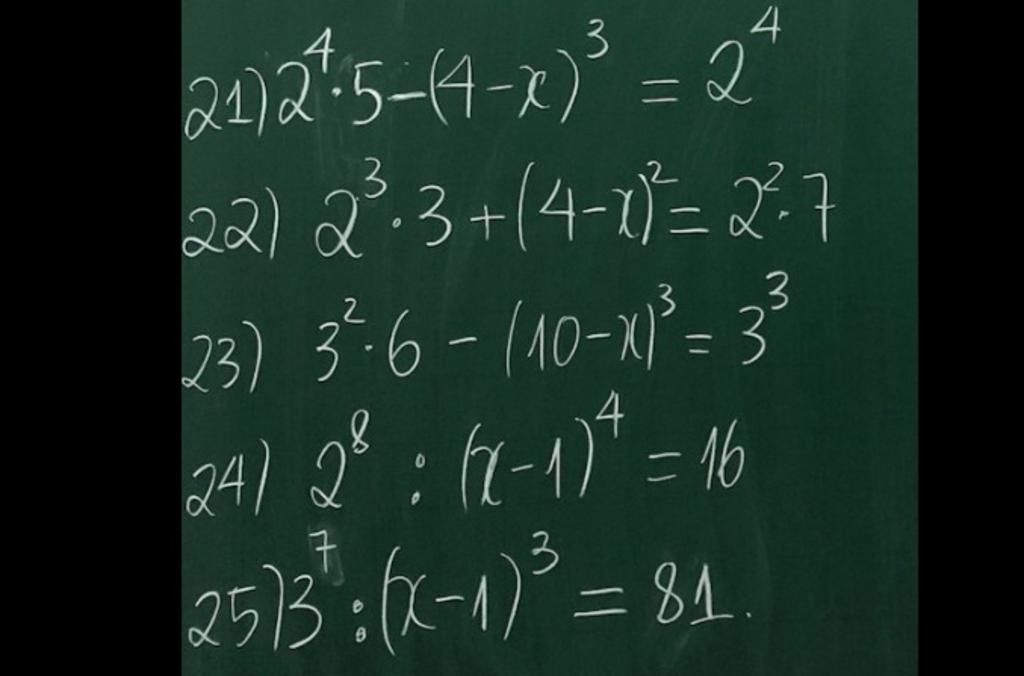 21) 2⁴·5-(4-x)³ = 2⁴
22) 2³·3+(4-x)² = 2²·7
23) 3²·6 - (10-x)³ = 3³
24) 2⁸ : (x-1)⁴ = 16
25) 3⁷ : (x-1)³ = 81.